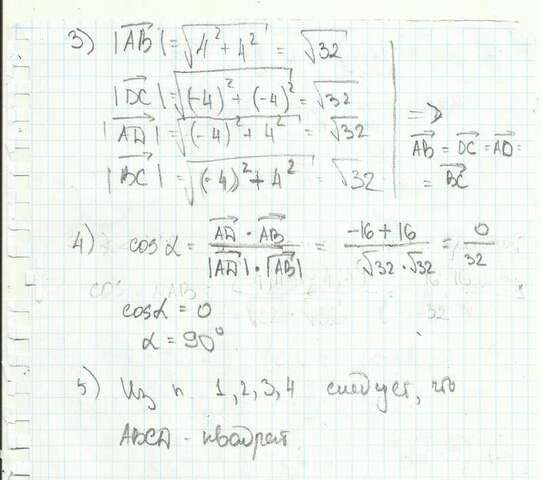 3) |AB| = √(4² + 4²) = √32
|DC| = √((-4)² + (-4)²) = √32
|AD| = √((-4)² + 4²) = √32
|BC| = √((-4)² + 4²) = √32
=>
AB = DC = AD =
= BC
4) cos α = AD · AB / |AD| · |AB| = -16 + 16 / √32 · √32 = 0 / 32
cos α = 0
α = 90°
5) Из п 1, 2, 3, 4 следует, что
ABCD - квадрат